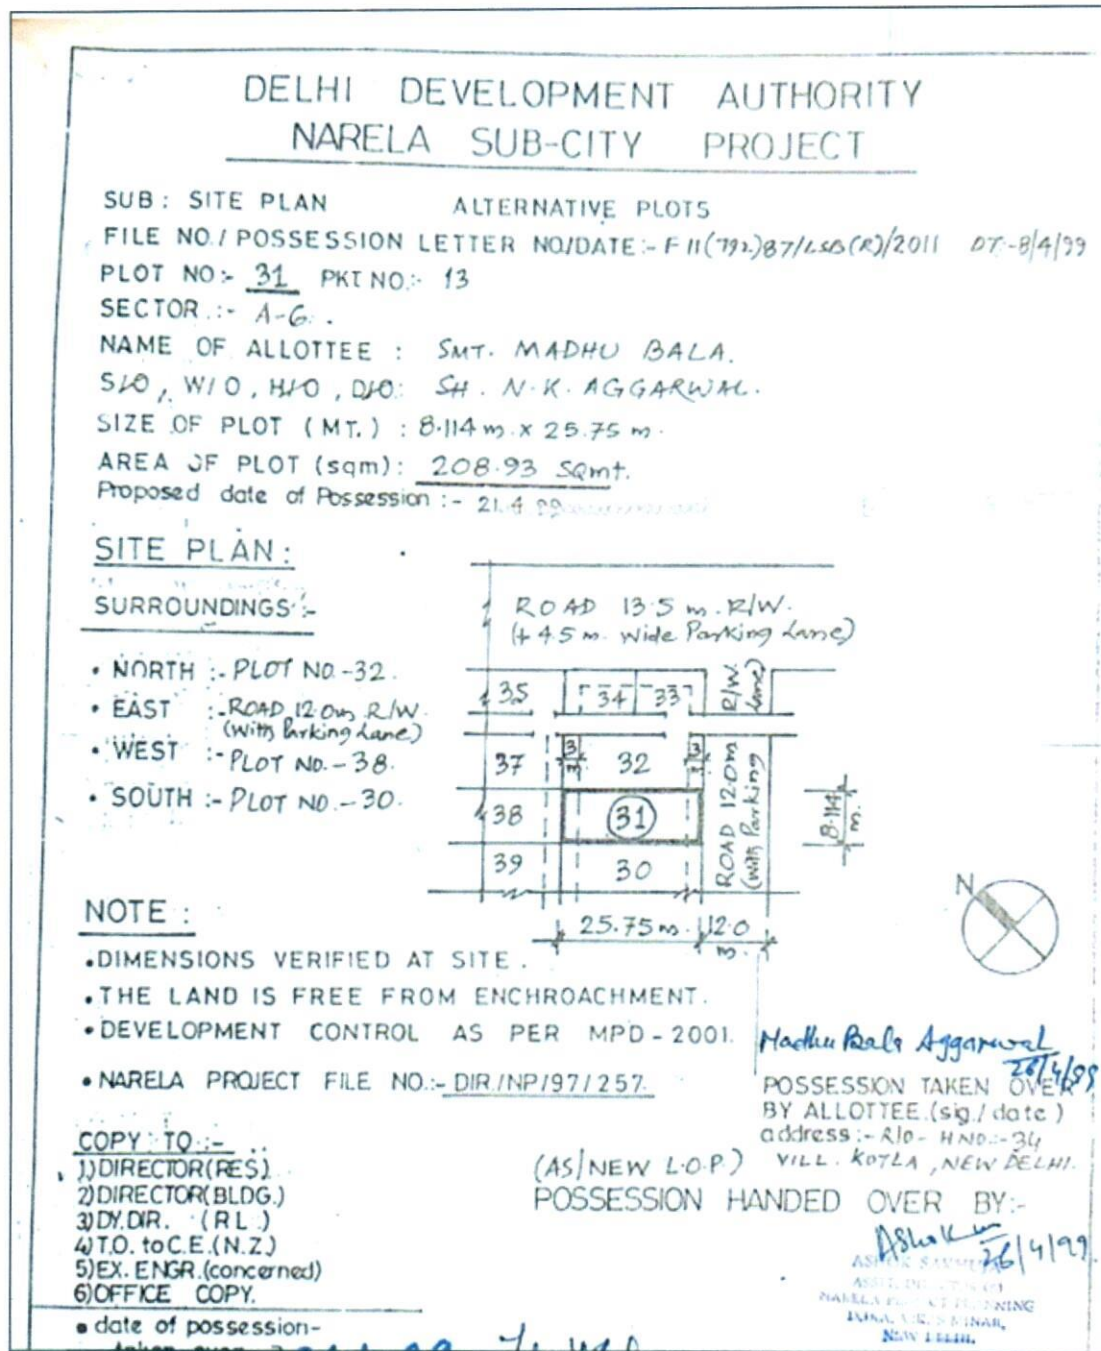 DELHI DEVELOPMENT AUTHORITY
NARELA SUB-CITY PROJECT
SUB: SITE PLAN ALTERNATIVE PLOTS
FILE NO./POSSESSION LETTER NO/DATE:- F11(792)87/LSB(R)/2011 DT-8/4/99
PLOT NO:- 31 PKT NO:- 13
SECTOR:- A-6.
NAME OF ALLOTTEE : SMT. MADHU BALA.
S/O, W/O, H/O, D/O: SH. N.K. AGGARWAL.
SIZE OF PLOT (MT.) : 8.114 m. x 25.75 m.
AREA OF PLOT (sqm): 208.93 Sqmt.
Proposed date of Possession :- 21.4.99
SITE PLAN:
SURROUNDINGS:-
• NORTH :- PLOT NO.-32.
• EAST :- ROAD 12.0m R/W.
(With Parking Lane)
• WEST :- PLOT NO.-38.
• SOUTH :- PLOT NO.-30.
ROAD 13.5 m. R/W.
(+ 4.5 m. Wide Parking Lane)
35 34 33
37 3 32 3
38 31
39 30
ROAD 12.0m R/W.
(With Parking Lane)
8.114 m.
25.75 m. 12.0 m.
N
NOTE :
• DIMENSIONS VERIFIED AT SITE.
• THE LAND IS FREE FROM ENCHROACHMENT.
• DEVELOPMENT CONTROL AS PER MPD-2001.
• NARELA PROJECT FILE NO.:- DIR./NP/97/257.
Madhu Bala Aggarwal
26/4/99
POSSESSION TAKEN OVER
BY ALLOTTEE.(sig./date)
address:- R/O- H NO:-34
VILL. KOTLA, NEW DELHI.
COPY TO:-
1) DIRECTOR(RES.)
2) DIRECTOR(BLDG.)
3) DY.DIR. (RL.)
4) T.O. to C.E.(N.Z.)
5) EX. ENGR.(concerned)
6) OFFICE COPY.
(AS/NEW L.O.P.)
POSSESSION HANDED OVER BY:-
26/4/99
NEW DELHI.
• date of possession-